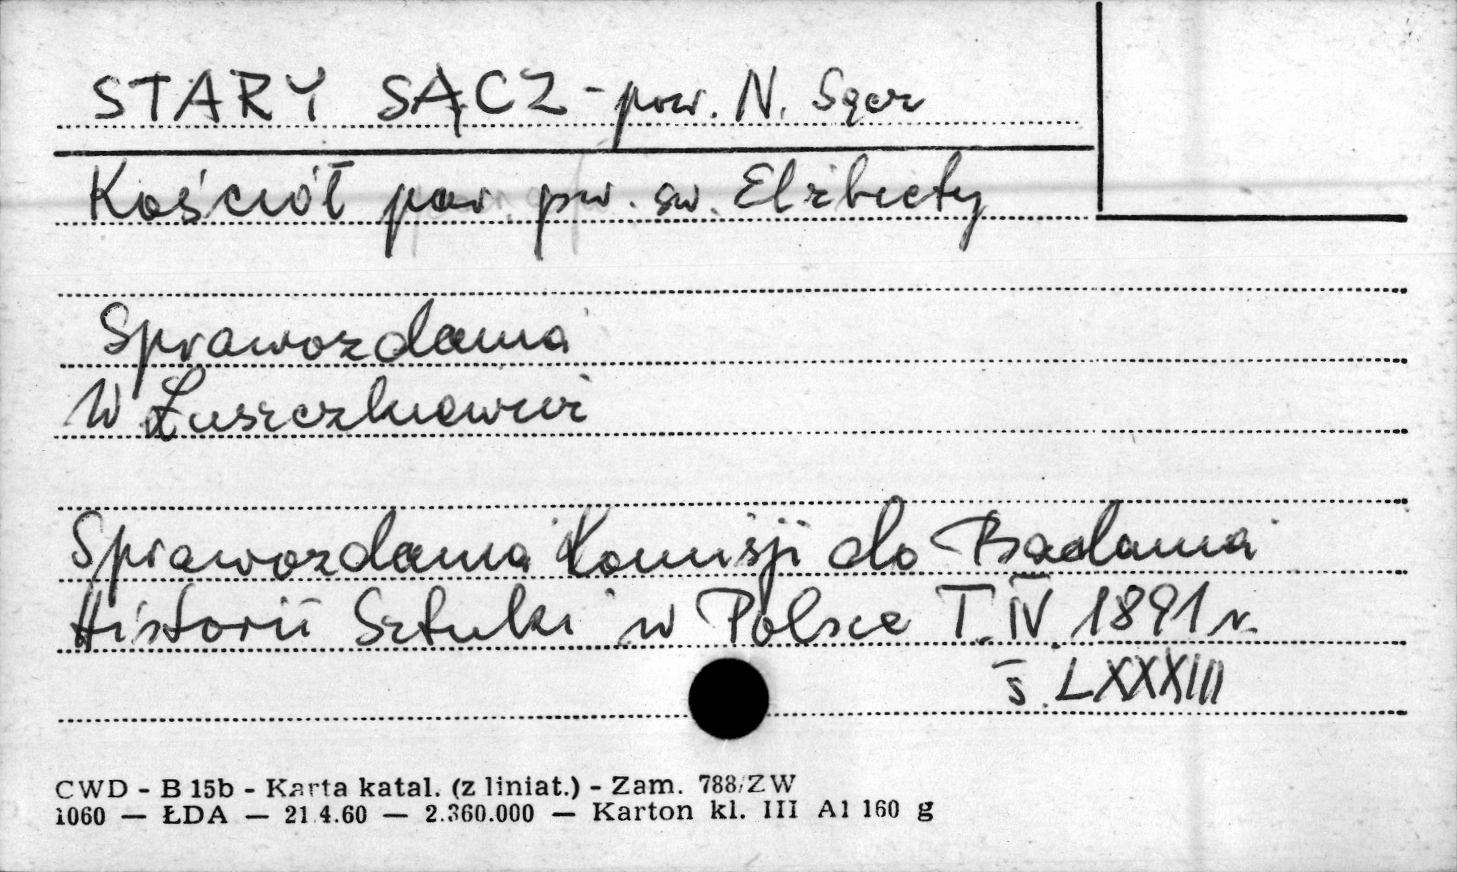 STARY SĄCZ - pow. N. Sącz
Kościół par. pw. św. Elżbiety
Sprawozdania
W Łuszczkiewicz
Sprawozdania Komisji do Badania
Historii Sztuki w Polsce T. IV. 1891 r.
s. LXXXIII
CWD - B 15b - Karta katal. (z liniat.) - Zam. 788/ZW
1060 — ŁDA — 21.4.60 — 2.360.000 — Karton kl. III A1 160 g